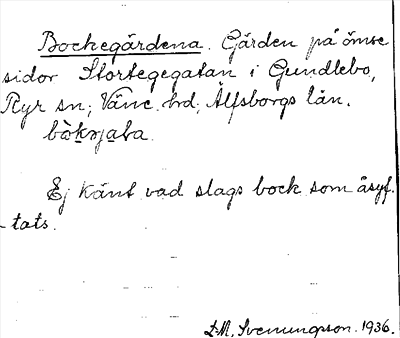 Bockegärdena. Gärden på ömse
sidor Stortegegatan i Gundlebo,
Ryr sn; Väne hrd; Älfsborgs län.
Ej känt vad slags bock som åsyf-
tats.
D.M. Svenungson. 1936.